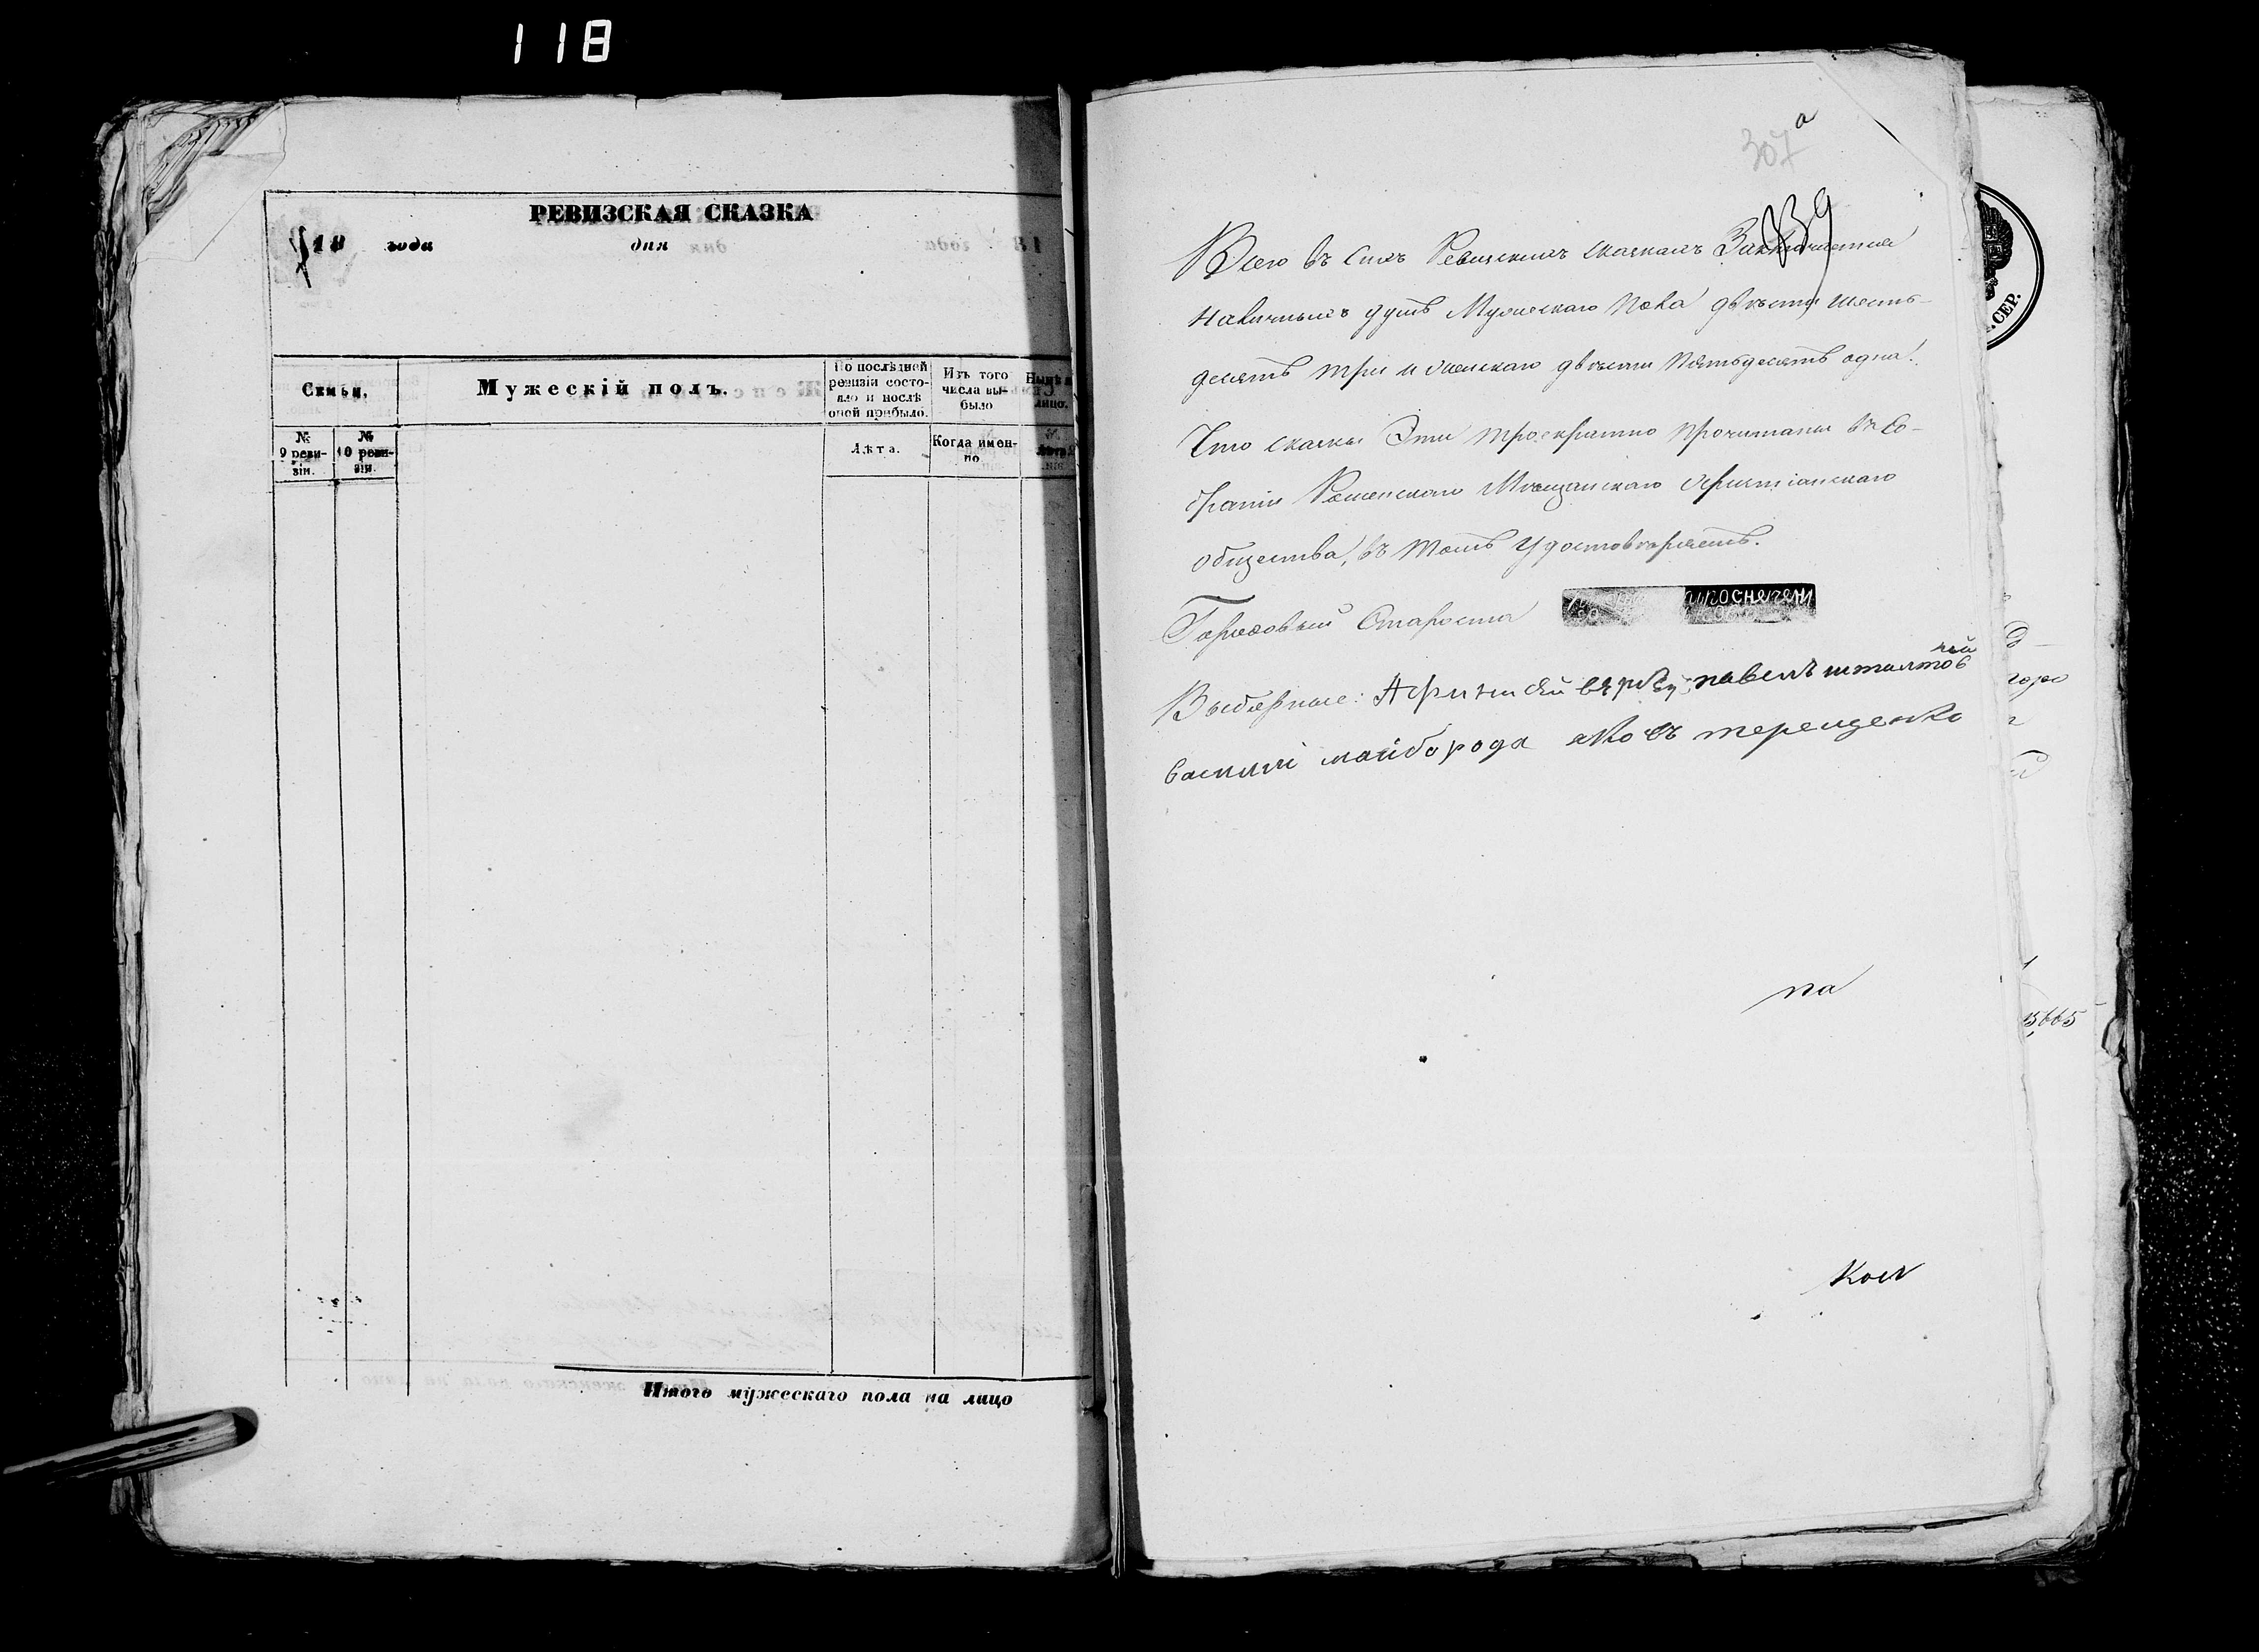 118
РЕВИЗСКАЯ СКАЗКА
18 года дня
Семьи.
Мужескій полъ.
По послѣдней ревизіи состояло и послѣ оной прибыло.
Изъ того числа выбыло
Нынѣ на лицо.
№ 9 ревизіи.
№ 10 ревизіи.
Лѣта.
Когда именно
Лѣта
Итого мужескаго пола на лицо
307 а
839
Всего въ сихъ Ревизскихъ сказкахъ Заключается
наличныхъ душъ Мужескаго пола двѣсти шесть-
десятъ три и женскаго двѣсти пятьдесятъ одна.
Что сказки Эти троекратно прочитаны въ Со-
браніи Роменскаго Мѣщанскаго Христіанскаго
общества, въ томъ удостовѣряетъ.
Городовый Староста
Выборные: павелъ
василій майборода яковъ терещенко
СЕР.
па
Кол